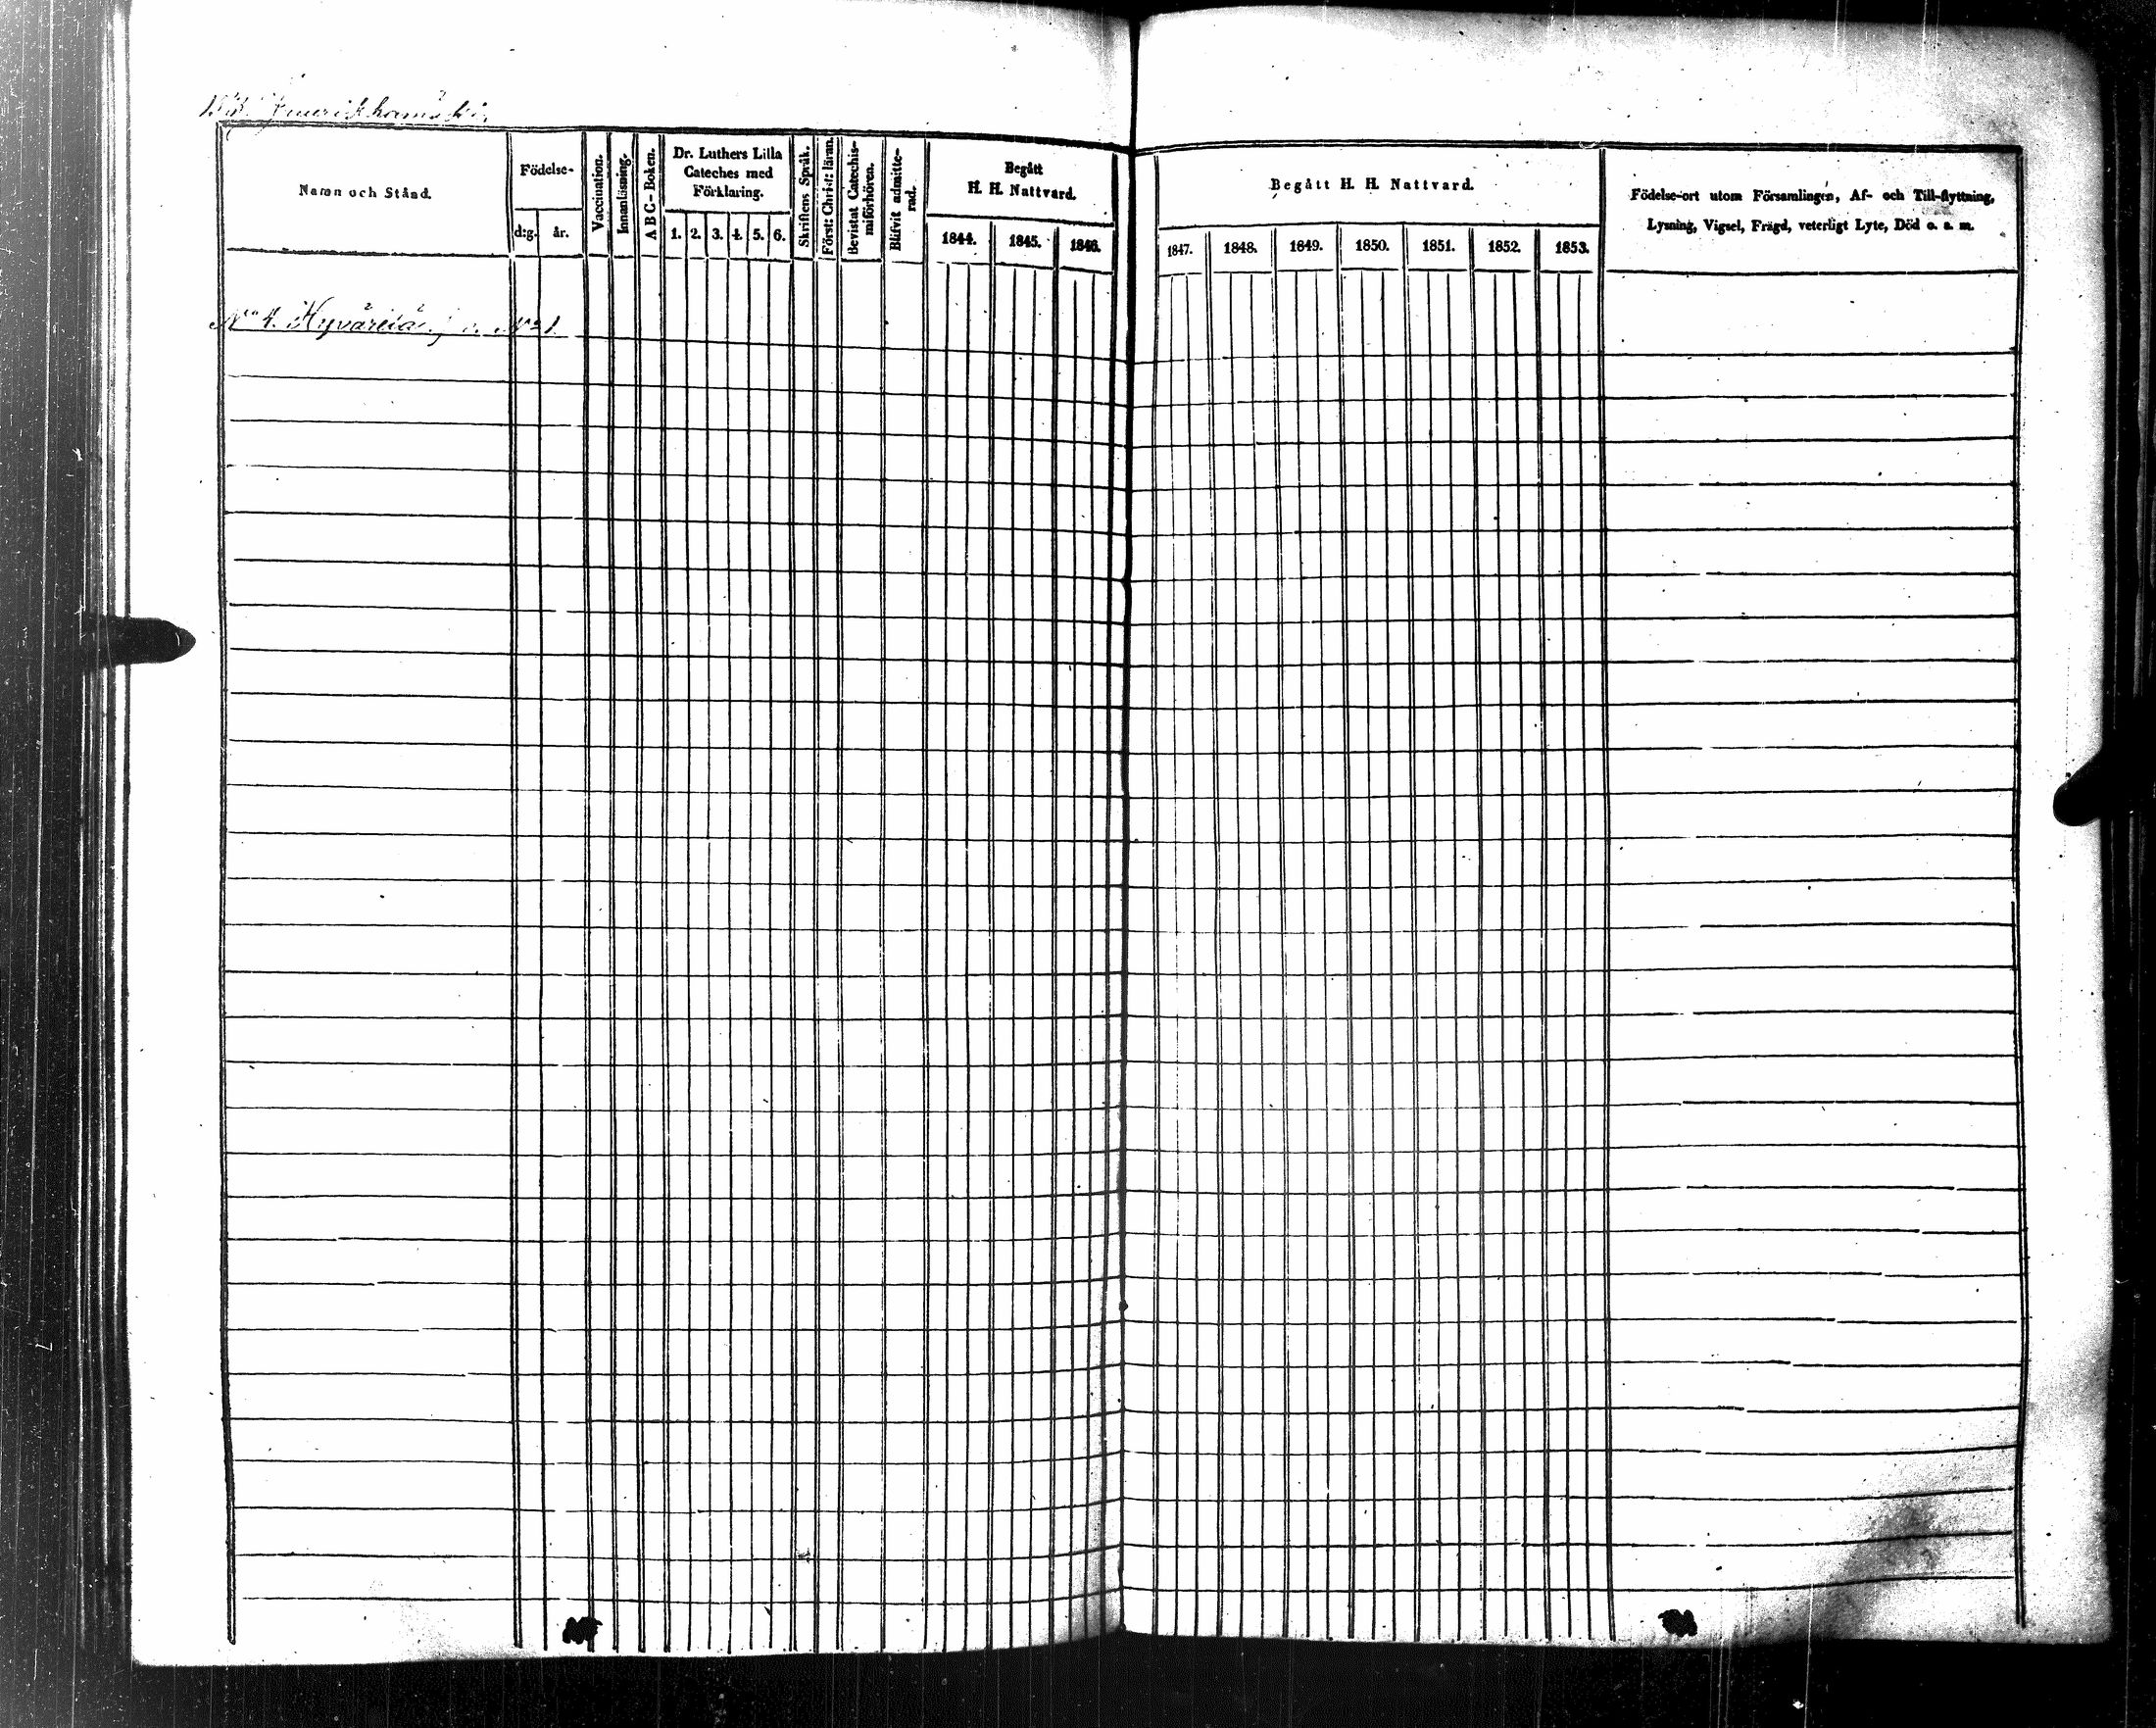 Namn och Stånd.
Födelse-
d:g. år.
Vaccination.
Innanläsning.
A B C-Boken.
Dr. Luthers Lilla
Cateches med
Förklaring.
1. 2. 3. 4. 5. 6.
Skriftens Språk.
Först: Christ: läran.
Bevistat Catechis-
miförhören.
Blifvit admitte-
rad.
Begått
H. H. Nattvard.
1844. 1845. 1846.
Begått H. H. Nattvard.
1847. 1848. 1849. 1850. 1851. 1852. 1853.
Födelse-ort utom Församlingen, Af- och Till-flyttning,
Lysning, Vigsel, Frägd, veterligt Lyte, Död o. s. m.
No 4. No 1.